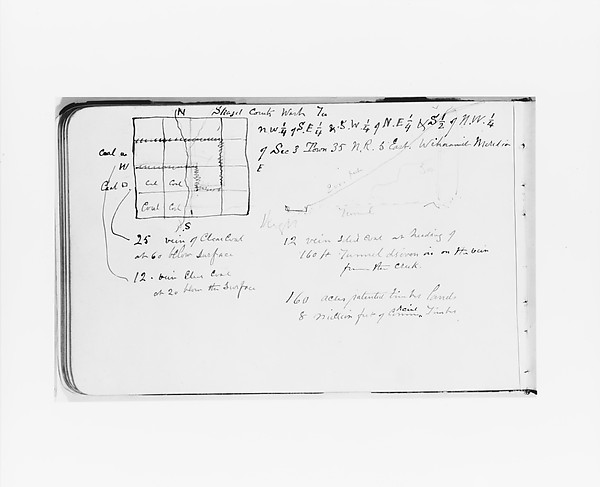 N Skagit County Wash Ter
N.W ¼ of S.E ¼ & S.W. ¼ of N.E ¼ & S ½ of N.W. ¼
of Sec 3 Town 35 N.R. 6 East
E
Coal
W
Coal
Coal Coal
Coal Coal
S
Tunnel
25 vein of Clear Coal
at 60 below Surface
12 vein Clear Coal
at 20 below the Surface
12 vein Coal at heading of
160 ft Tunnel driven in on the vein
from the creek.
160 acres patented Timber Land
8 million feet of Timber